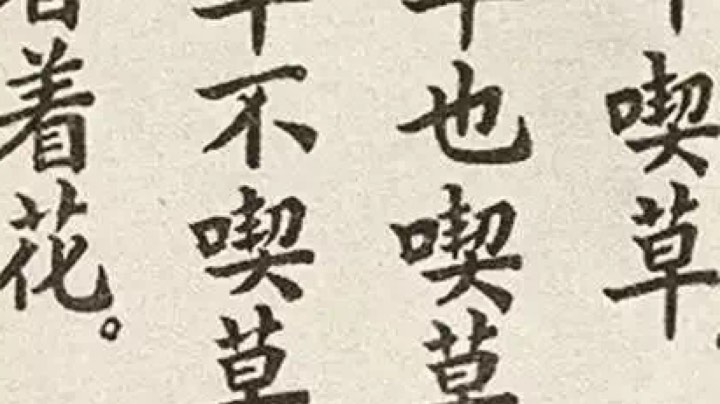 喫草
也喫草
不喫草
着花。